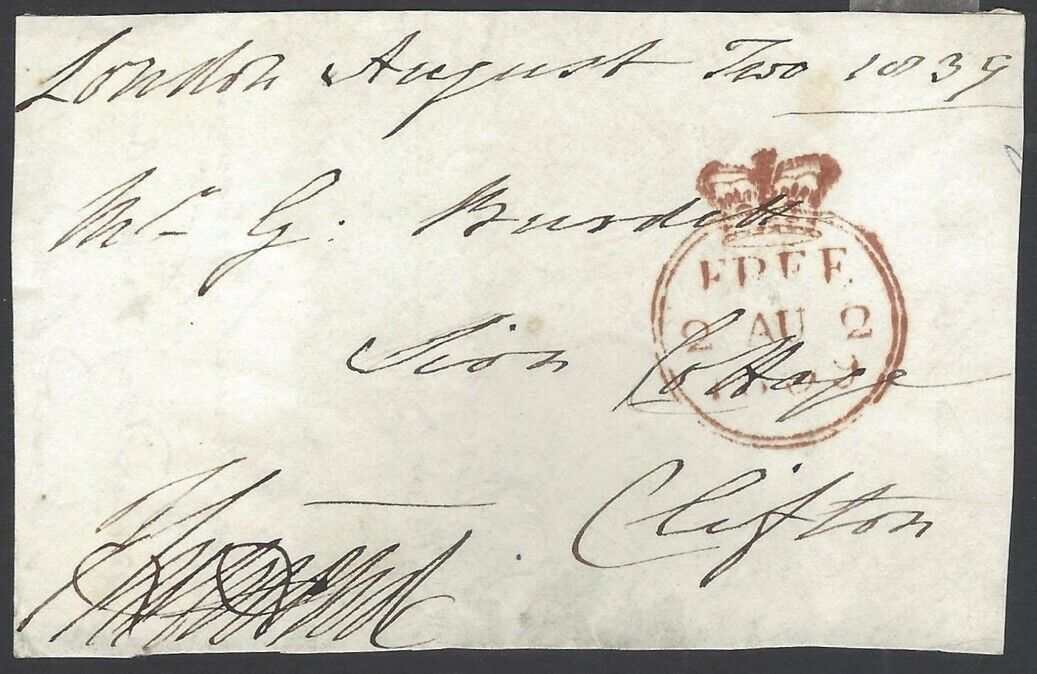 London August Two 1839
Mr G: Burdett
FREE
2 AU 2
1839
Sion Cottage
Clifton